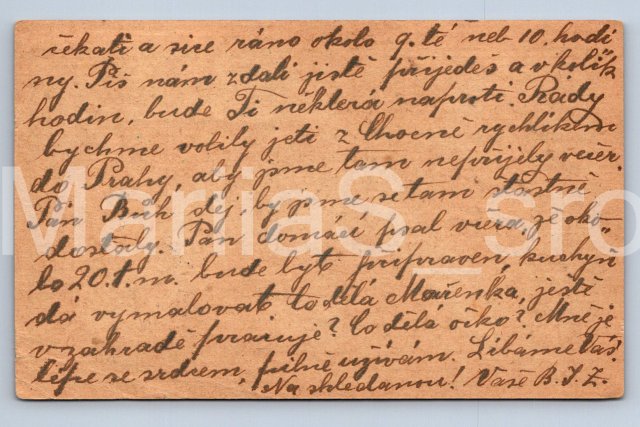 čekati a sice ráno okolo 9. té neb 10. hodi
ny. Piš nám zdali jistě přijedeš a v kolik
hodin, bude Ti některá naproti. Rády
bychme volily jeti z Chocně rychlíkem
do Prahy, aby jsme tam nepřijely večer.
Pán Bůh dej, by jsme se tam šťastně
dostaly. Pan domácí psal včera, že oko-
lo 20. t. m. bude byt připraven, kuchyň
dá vymalovat. Co dělá Mařenka, ještě
v zahradě pracuje? Co dělá očko? Mně je
lépe se srdcem, pilně užívám. Líbáme Vás.
Na shledanou! Vaše B. J. Z.
MarijaS_sro